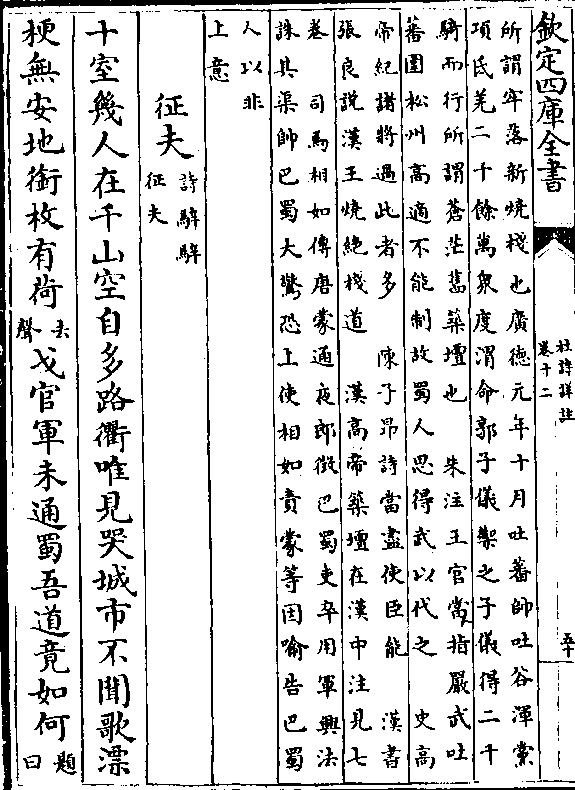 欽定四庫全書
杜詩詳註
卷十二
五十
所謂牢落新燒棧也廣德元年十月吐蕃帥吐谷渾党
項氐羌二十餘萬衆度渭命郭子儀禦之子儀得二十
騎而行所謂蒼茫舊築壇也　朱注王官當指嚴武吐
蕃圍松州高適不能制故蜀人思得武以代之　史高
帝紀諸將過此者多　陳子昂詩當盡使臣能　漢書
張良說漢王燒絶棧道　漢高帝築壇在漢中注見七
卷　司馬相如傳唐蒙通夜郎徵巴蜀吏卒用軍興法
誅其渠帥巴蜀大驚恐上使相如責蒙等因喻告巴蜀
人以非
上意
征夫 詩駪駪征夫
十室幾人在千山空自多路衢唯見哭城市不聞歌漂
梗無安地銜枚有荷 去聲 戈官軍未通蜀吾道竟如何 題曰